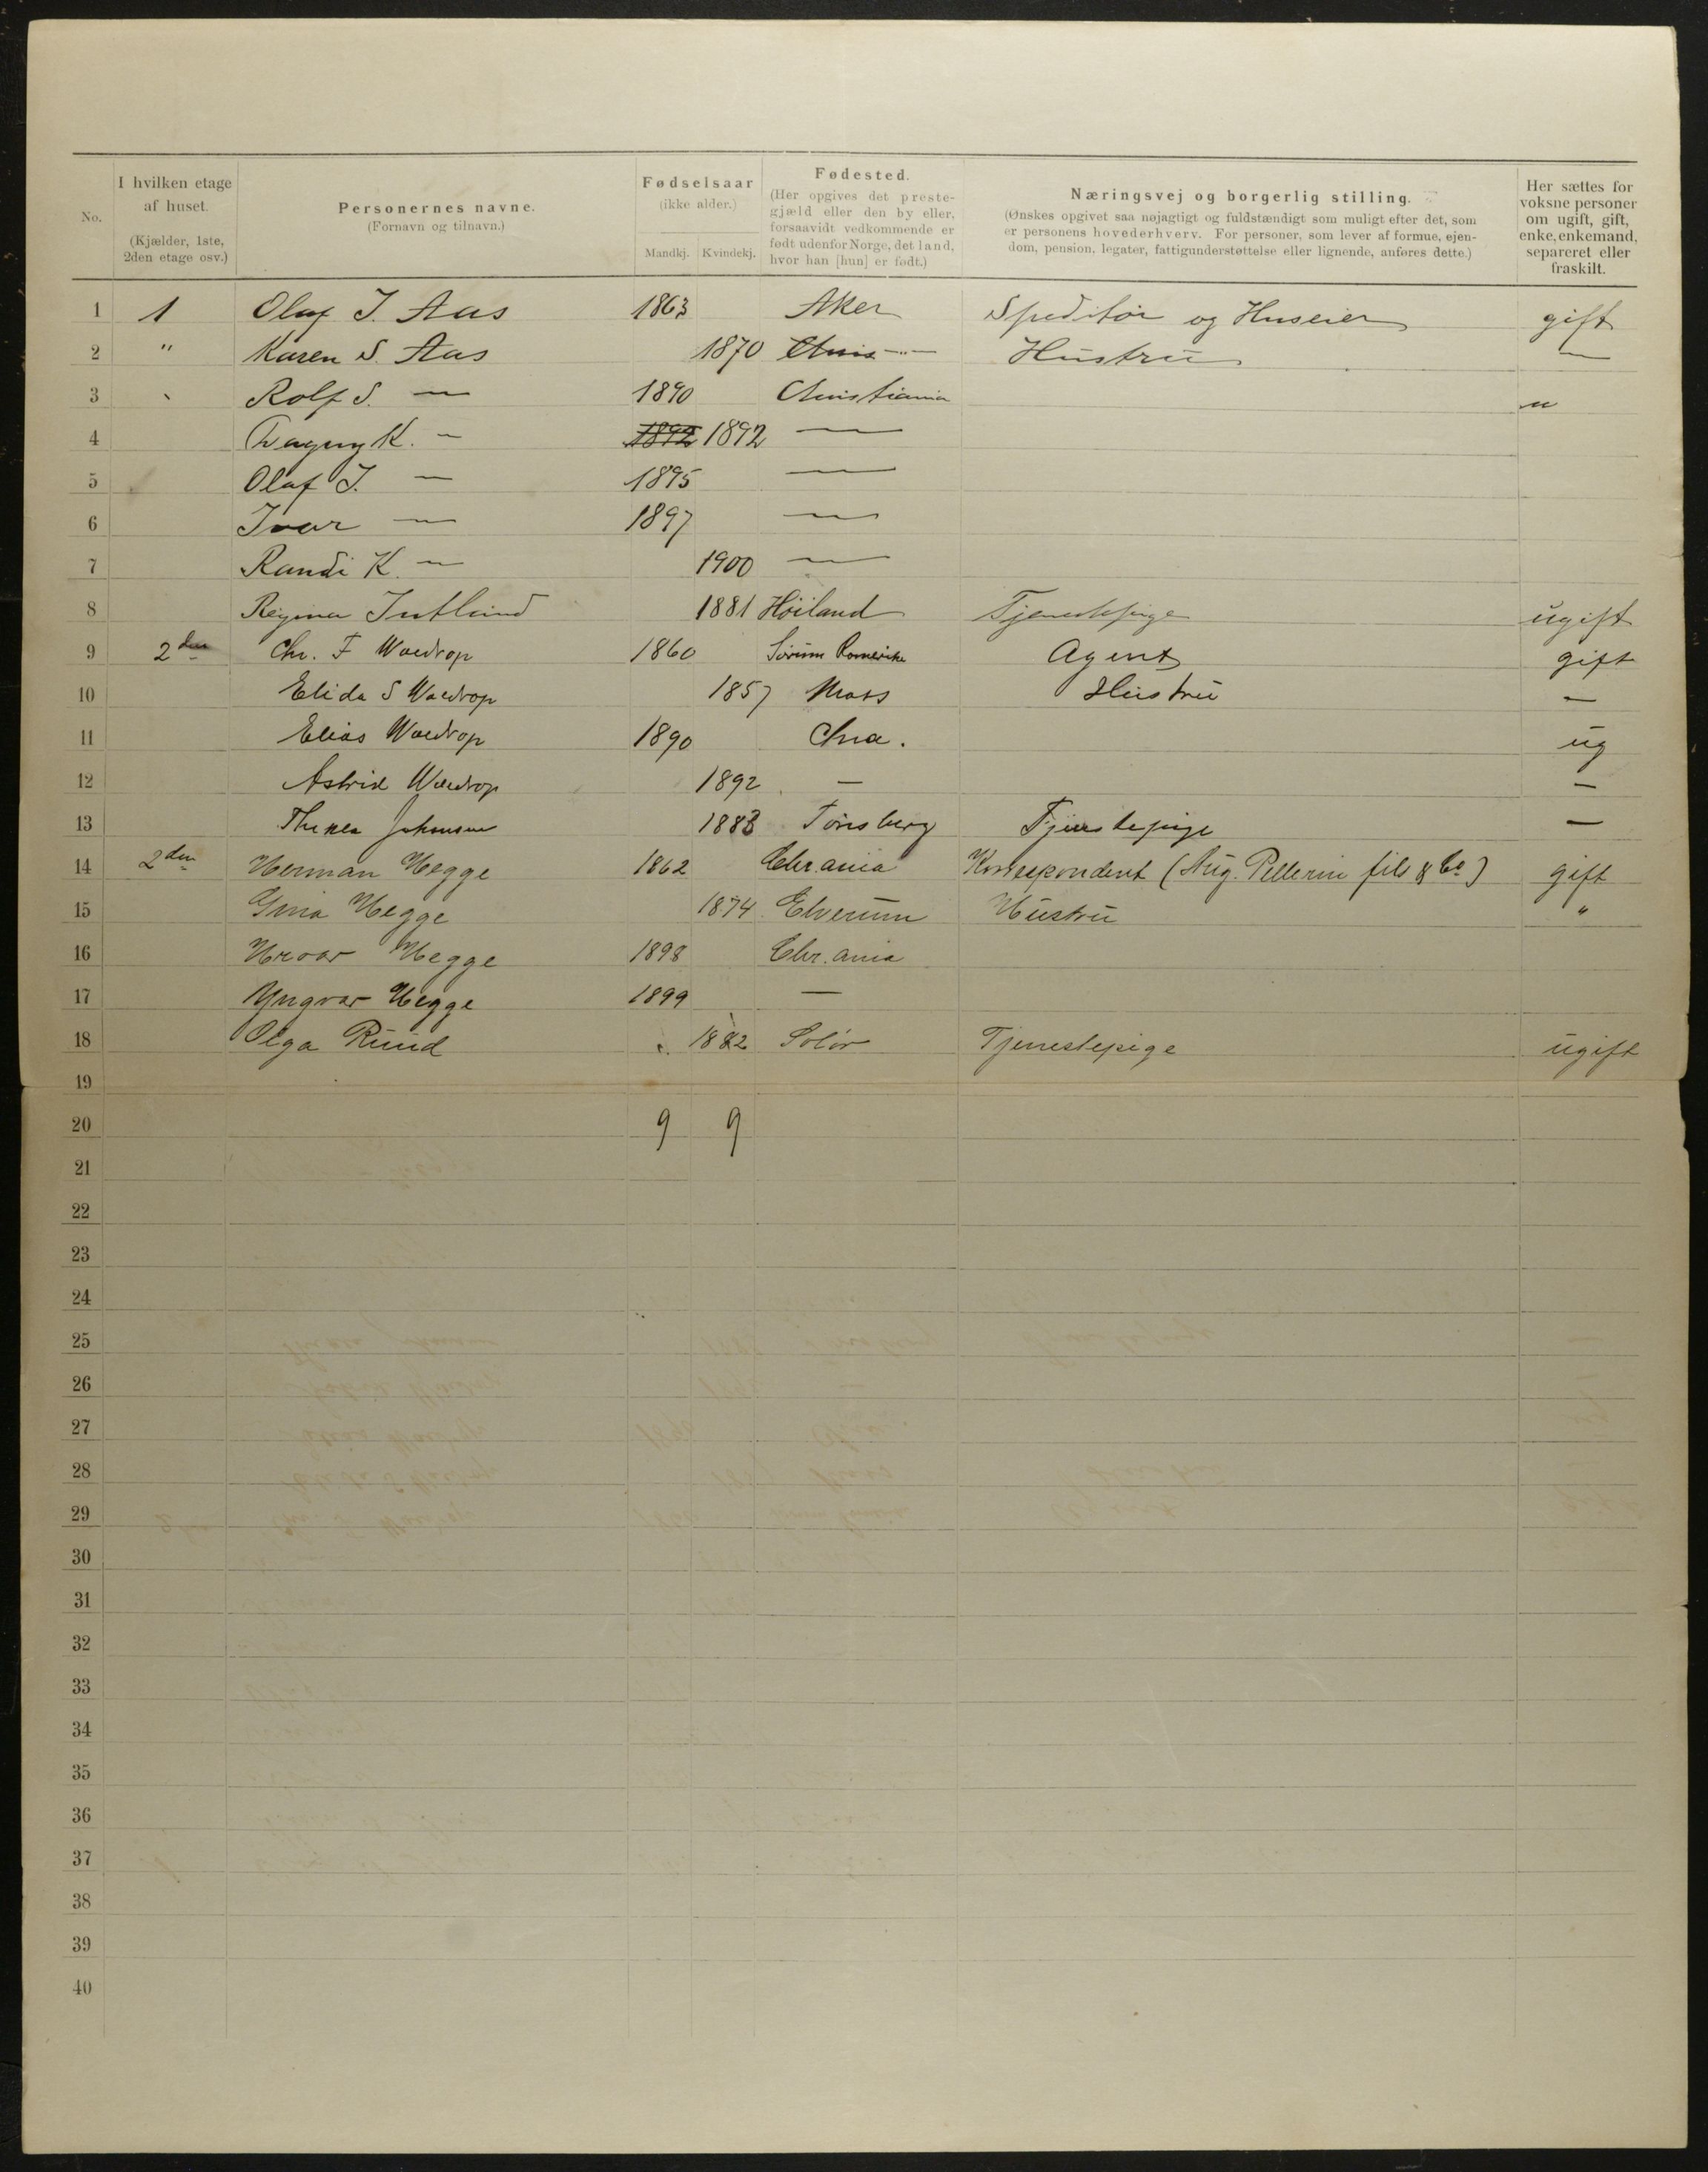 No.
I hvilken etage af huset. (Kjælder, 1ste, 2den etage osv.)
Personernes navne. (Fornavn og tilnavn.)
Fødselsaar (ikke alder.) Mandkj. Kvindekj.
Fødested. (Her opgives det prestegjæld eller den by eller, forsaavidt vedkommende er født udenfor Norge, det land, hvor han [hun] er født.)
Næringsvej og borgerlig stilling. (Ønskes opgivet saa nøjagtigt og fuldstændigt som muligt efter det, som er personens hovederhverv. For personer, som lever af formue, ejendom, pension, legater, fattigunderstøttelse eller lignende, anføres dette.)
Her sættes for voksne personer om ugift, gift, enke, enkemand, separeret eller fraskilt.
1 1 Olaf J. Aas 1863 Aker Speditør og Huseier gift
2 " Karen S. Aas 1870 Chris -"- Hustru —
3 Rolf S. — 1890 Christiania
4 Dagny K. — 1892 1892 —
5 Olaf J. — 1895 —
6 Ivar — 1897 —
7 Randi K. — 1900 —
8 Regina 1881 Høiland Tjenestepige ugift
9 2den Chr. F Wærdrop 1860 Sørum Romerike Agent gift
10 Elida S Wærdrop 1857 Moss Hustru —
11 Elias Wærdrop 1890 Chra. ug
12 Astrid Wærdrop 1892 — —
13 Thea Johnsen 1883 Tønsberg Tjenstepige —
14 2den Herman Hegge 1862 Chr.ania Korrespondent (Aug. Pellerin fils & Co) gift
15 Gina Hegge 1874 Elverum Hustru "
16 Hroar Hegge 1898 Chr.ania
17 Yngvar Hegge 1899 —
18 Olga Ruud 1882 Solør Tjenestepige ugift
19
20 9 9
21
22
23
24
25
26
27
28
29
30
31
32
33
34
35
36
37
38
39
40